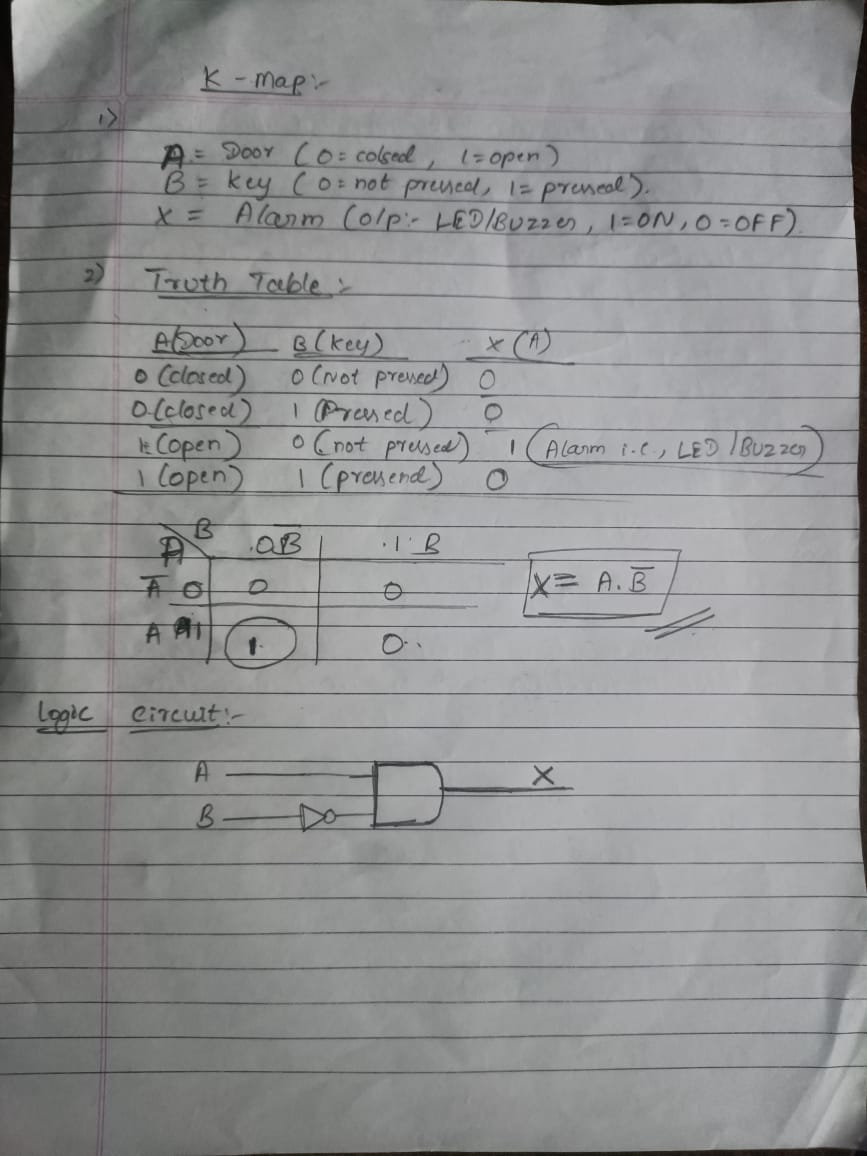 K - map :-
1)
A = Door ( 0 = colsed , 1 = open )
B = key ( 0 = not pressed, 1 = pressed ).
X = Alarm ( o/p :- LED/BUZZER , 1 = ON , 0 = OFF )
2) Truth Table :-
A(Door) B (key) X (A)
0 (closed) 0 (Not pressed) 0
0 (closed) 1 (Pressed) 0
1 (open) 0 (not pressed) 1 (Alarm i.e., LED / BUZZER)
1 (open) 1 (pressend) 0
B
A 0 B̅ 1 B
A̅ 0 0 0
A 1 1 0
X = A . B̅
Logic circuit :-
A X
B